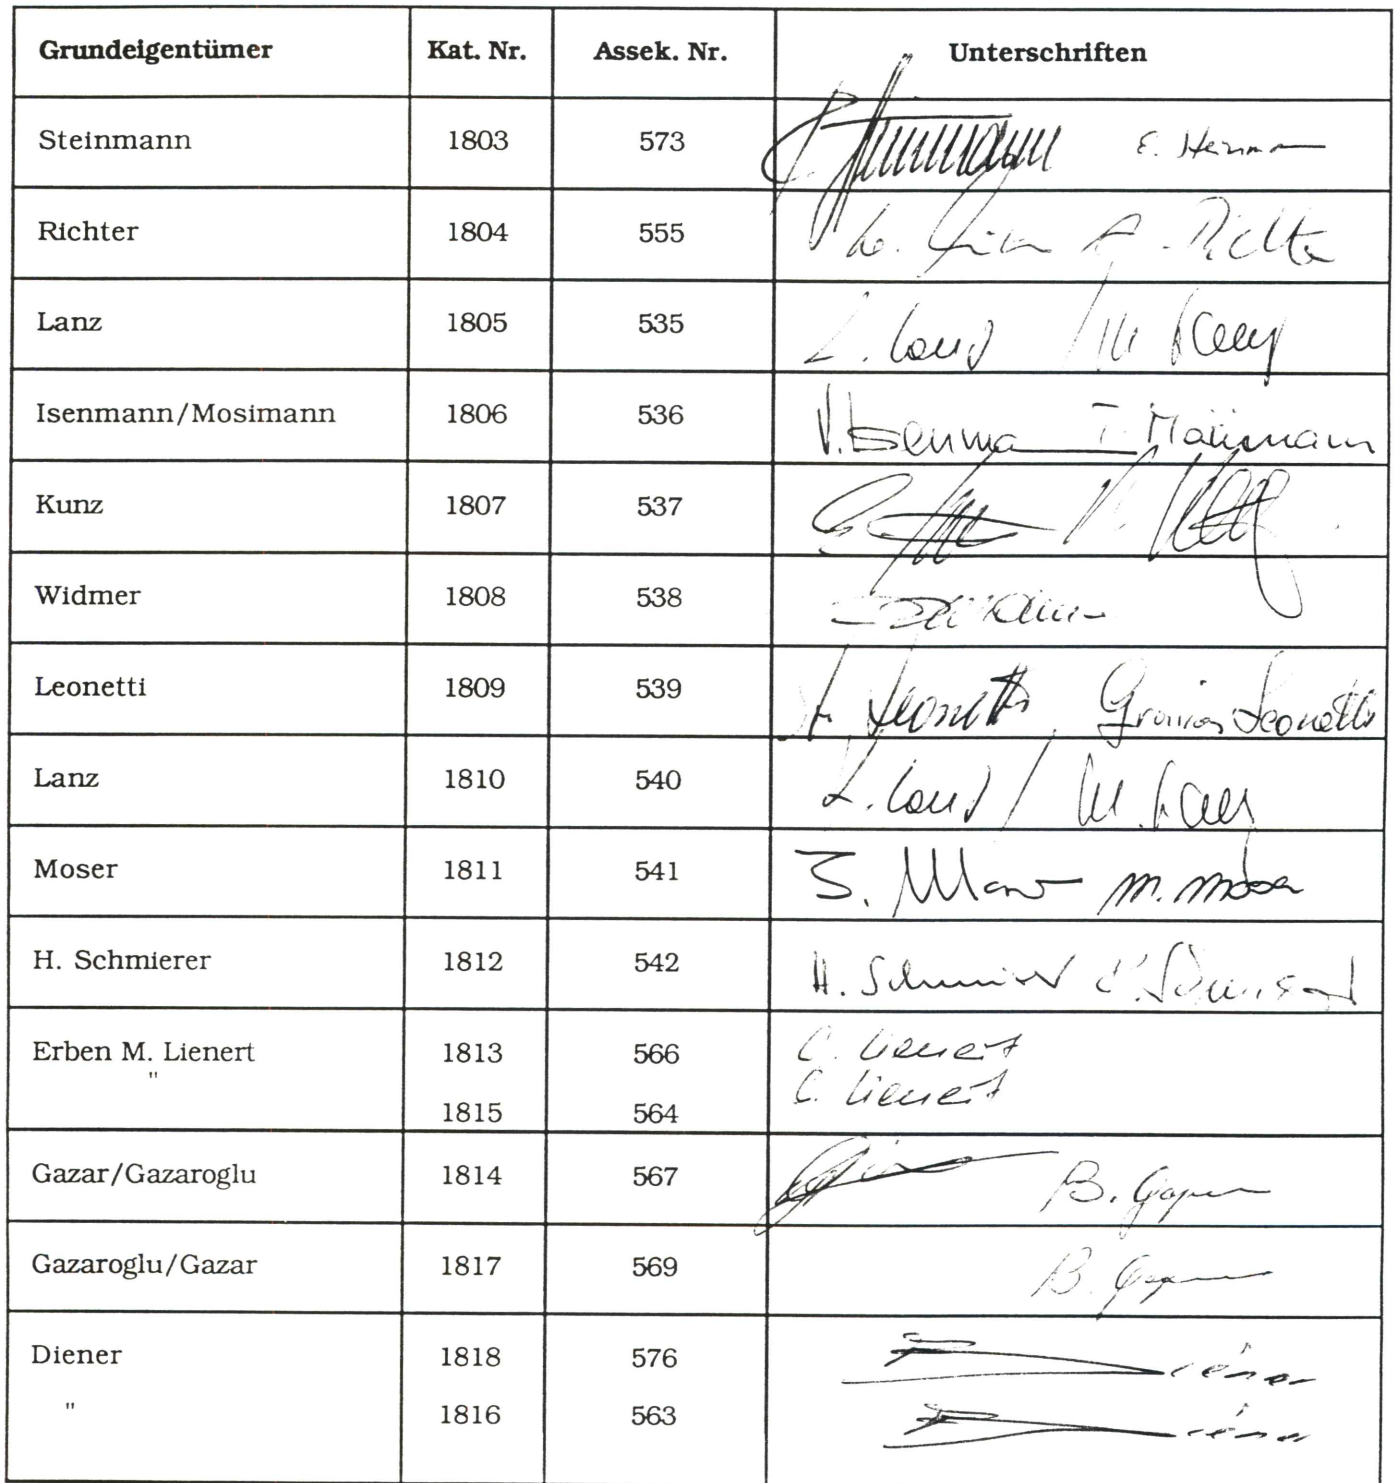 Grundeigentümer Kat. Nr. Assek. Nr. Unterschriften
Steinmann 1803 573
Richter 1804 555 A. Richter
Lanz 1805 535 L. Lanz / M. Lanz
Isenmann/Mosimann 1806 536 V. Isenma T. Mosimann
Kunz 1807 537
Widmer 1808 538
Leonetti 1809 539 Leonetti Leonetti
Lanz 1810 540 L. Lanz / M. Lanz
Moser 1811 541 M. Moser
H. Schmierer 1812 542 H. Schmierer
Erben M. Lienert 1813 566 C. Lienert
" C. Lienert
1815 564
Gazar/Gazaroglu 1814 567 B. Gazar
Gazaroglu/Gazar 1817 569 B. Gazar
Diener 1818 576 Diener
" 1816 563 Diener